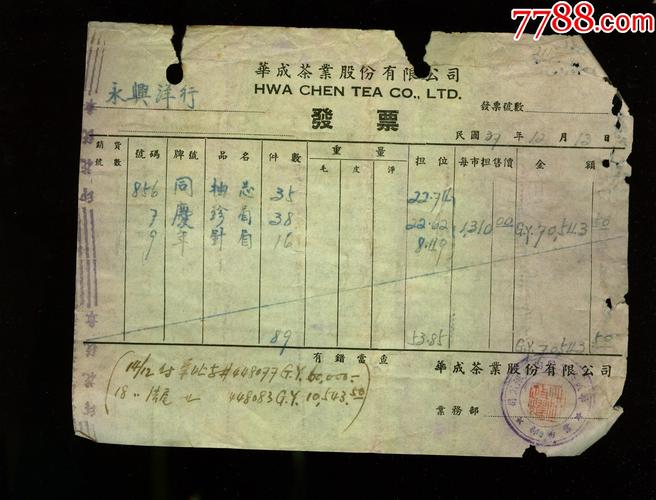 7788.com
華成茶業股份有限公司
HWA CHEN TEA CO., LTD.
永興洋行
發票號數
發票
民國 37 年 12 月 13 日
銷貨號數 號碼 牌號 品名 件數 重量 毛 皮 淨 担位 每市担售價 金額
856 同 抽芯 35 22.74
7 慶 珍眉 38 22.62 1,310 00 G.Y. 70,543 50
9 年 針眉 16 8.49
89 53.85 G.Y. 70543 50
有錯當查
14/12 448077 G.Y. 60,000.-
18 〃 448083 G.Y. 10,543.50
華成茶業股份有限公司
業務部